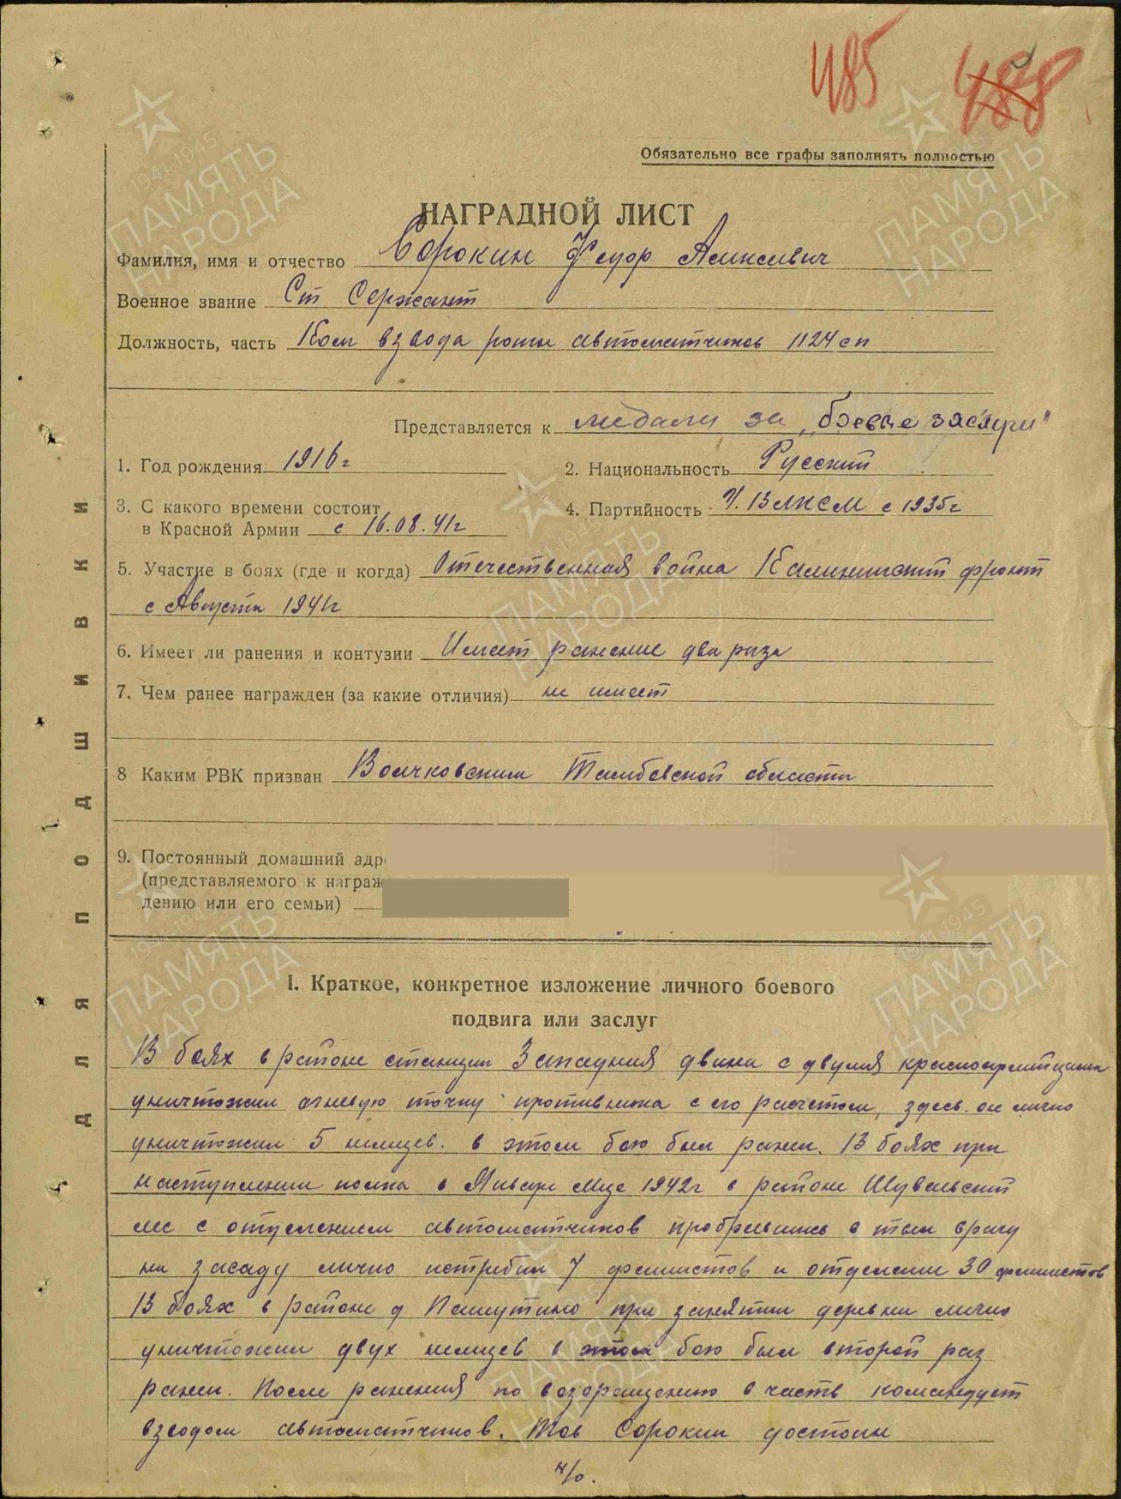 485 488
Обязательно все графы заполнять полностью
НАГРАДНОЙ ЛИСТ
Фамилия, имя и отчество Сорокин Федор Алексеевич
Военное звание Ст Сержант
Должность, часть Ком взвода роты автоматчиков 1124 сп
Представляется к медали за „боевые заслуги"
1. Год рождения 1916 г
2. Национальность Русский
3. С какого времени состоит
в Красной Армии с 16.08.41г
4. Партийность Ч. ВЛКСМ с 1935г
5. Участие в боях (где и когда) Отечественная война Калининский фронт
с Августа 1941г
6. Имеет ли ранения и контузии Имеет ранение два раза
7. Чем ранее награжден (за какие отличия) не имеет
8 Каким РВК призван Волчковским Тамбовской области
9. Постоянный домашний адр
(представляемого к награж
дению или его семьи)
ДЛЯ ПОДШИВКИ
I. Краткое, конкретное изложение личного боевого
подвига или заслуг
В боях в районе станции Западная двина с двумя красноармейцами
уничтожил огневую точку противника с его расчетом, здесь он лично
уничтожил 5 немцев. в этом бою был ранен. В боях при
наступлении полка в Январе м-це 1942г в районе Шувальский
лес с отделением автоматчиков пробравшись в тыл врагу
на засаду лично истребил 7 фашистов и отделение 30 фашистов
В боях в районе д Пашутино при занятии деревни лично
уничтожил двух немцев в этом бою был второй раз
ранен. После ранения по возвращению в часть командует
взводом автоматчиков. Тов Сорокин достоин
н/о.
ПАМЯТЬ НАРОДА
1941-1945